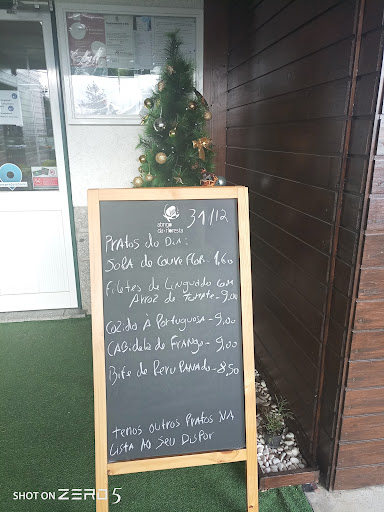 abrigo
da floresta
31/12
Pratos do Dia:
Sopa de Couve Flor - 1,60
Filetes de Linguado com
Arroz de Tomate - 9,00
Cozido à Portuguesa - 9,00
Cabidela de Frango - 9,00
Bife de Peru Panado - 8,50
Temos outros Pratos NA
Lista Ao Seu Dispor
SHOT ON ZERO 5